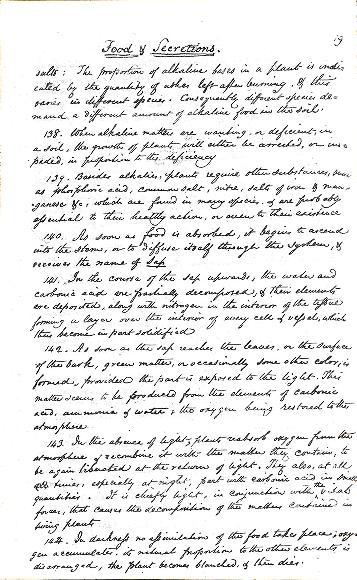 19
Food & Secretions.
salts: The proportion of alkaline bases in a plant is indi-
cated by the quantity of ashes left after burning. & this
varies in different species. Consequently different species de-
mand a different amount of alkaline food in the soil.
138. When alkaline matters are wanting, or deficient, in
a soil, the growth of plants will either be arrested, or im-
peded, in proportion to the deficiency
139. Besides alkalies, plants require other substances, such
as phosphoric acid, common salt, nitre, salts of iron & man-
ganese &c, which are found in many species, & are probably
essential to their healthy action, or even to their existence
140. As soon as food is absorbed, it begins to ascend
into the stems, or to diffuse itself through the system, &
receives the name of Sap
141. In the course of the sap upwards, the water and
carbonic acid are partially decomposed, & their elements
are deposited, along with nitrogen in the interior of the tissue
forming a layer over the interior of every cell & vessel, which
thus become in part solidified
142. As soon as the sap reaches the leaves, or the surface
of the bark, green matter, or occasionally some other color, is
formed, provided the part is exposed to the light. This
matter seems to be produced from the elements of carbonic
acid, ammonia & water; the oxygen being restored to the
atmosphere
143. In the absence of light, plants reabsorb oxygen from the
atmosphere & recombine it with the matter they contain, to
be again liberated at the return of light. They also, at all
times, especially at night, part with carbonic acid in small
quantities. It is chiefly light, in conjunction with the vital
forces, that causes the decomposition of the matters contained in
living plants
144. In darkness no assimilation of the food takes place; oxy-
gen accumulates, its natural proportion to the other elements is
disarranged, the plant becomes blanched, & then dies.